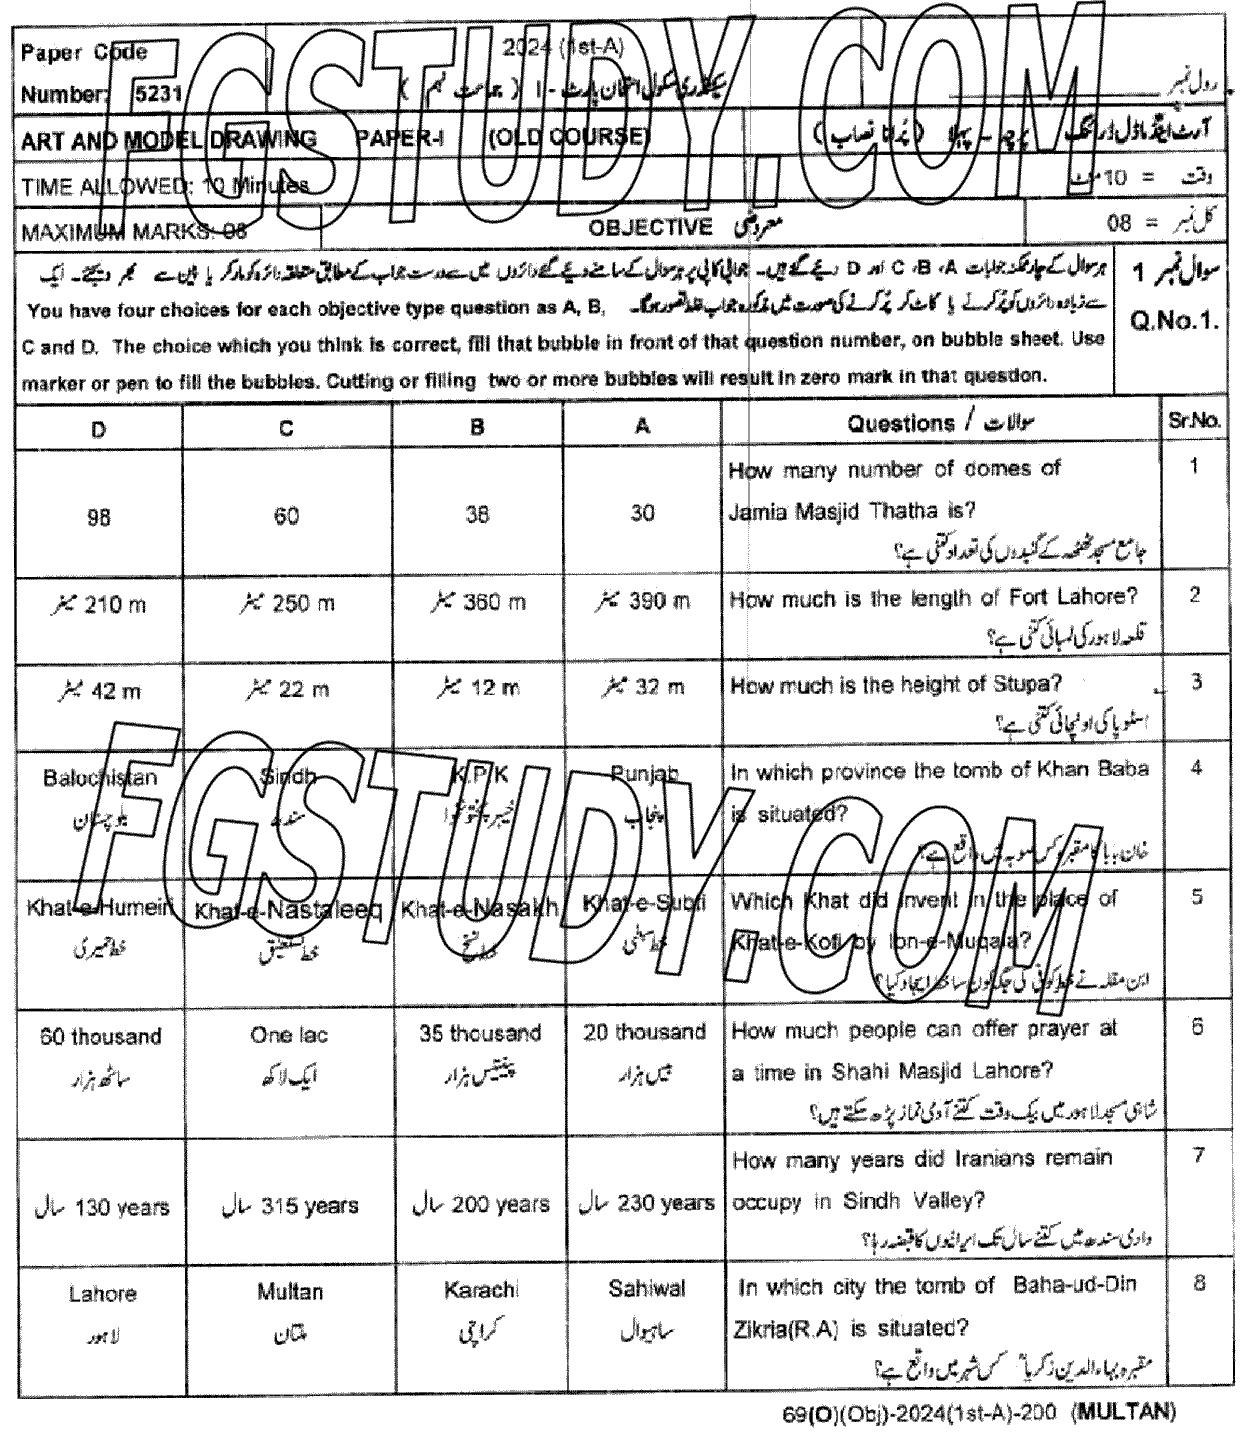 Paper Code
2024 (1st-A)
Number: 5231
سیکنڈری سکول امتحان پارٹ - I ( جماعت نہم )
رول نمبر
ART AND MODEL DRAWING PAPER-I (OLD COURSE)
آرٹ اینڈ ماڈل ڈرائنگ پرچہ - پہلا ( پُرانا نصاب )
TIME ALLOWED: 10 Minutes
وقت = 10 منٹ
MAXIMUM MARKS: 08
OBJECTIVE معروضی
کل نمبر = 08
سوال نمبر 1
Q.No.1.
ہر سوال کے چار ممکنہ جوابات A، B، C اور D دیئے گئے ہیں۔ جوابی کاپی پر ہر سوال کے سامنے دیئے گئے دائروں میں سے درست جواب کے مطابق متعلقہ دائرہ کو مارکر یا پین سے بھر دیجئے۔ ایک
سے زیادہ دائروں کو پُر کرنے یا کاٹ کر پُر کرنے کی صورت میں مذکورہ جواب غلط تصور ہوگا۔
You have four choices for each objective type question as A, B,
C and D. The choice which you think is correct, fill that bubble in front of that question number, on bubble sheet. Use
marker or pen to fill the bubbles. Cutting or filling two or more bubbles will result in zero mark in that question.
D C B A Questions / سوالات Sr.No.
How many number of domes of 1
98 60 38 30 Jamia Masjid Thatha is?
جامع مسجد ٹھٹھہ کے گنبدوں کی تعداد کتنی ہے؟
210 m میٹر 250 m میٹر 360 m میٹر 390 m میٹر How much is the length of Fort Lahore? 2
قلعہ لاہور کی لمبائی کتنی ہے؟
42 m میٹر 22 m میٹر 12 m میٹر 32 m میٹر How much is the height of Stupa? 3
اسٹوپا کی اونچائی کتنی ہے؟
Balochistan Sindh K.P.K Punjab In which province the tomb of Khan Baba 4
بلوچستان سندھ خیبر پختونخوا پنجاب is situated?
خان بابا کا مقبرہ کس صوبہ میں واقع ہے؟
Khat-e-Humeiri Khat-e-Nastaleeq Khat-e-Nasakh Khat-e-Subti Which Khat did invent in the place of 5
خط حمیری خط نستعلیق خط نسخ Khat-e-Kofi by Ibn-e-Muqala?
ابن مقلہ نے خط کوفی کی جگہ کون سا خط ایجاد کیا؟
60 thousand One lac 35 thousand 20 thousand How much people can offer prayer at 6
ساٹھ ہزار ایک لاکھ پینتیس ہزار بیس ہزار a time in Shahi Masjid Lahore?
شاہی مسجد لاہور میں بیک وقت کتنے آدمی نماز پڑھ سکتے ہیں؟
How many years did Iranians remain 7
130 years سال 315 years سال 200 years سال 230 years سال occupy in Sindh Valley?
وادی سندھ میں کتنے سال تک ایرانیوں کا قبضہ رہا؟
Lahore Multan Karachi Sahiwal In which city the tomb of Baha-ud-Din 8
لاہور ملتان کراچی ساہیوال Zikria(R.A) is situated?
مقبرہ بہاءالدین زکریاؒ کس شہر میں واقع ہے؟
69(O)(Obj)-2024(1st-A)-200 (MULTAN)
FGSTUDY.COM
FGSTUDY.COM